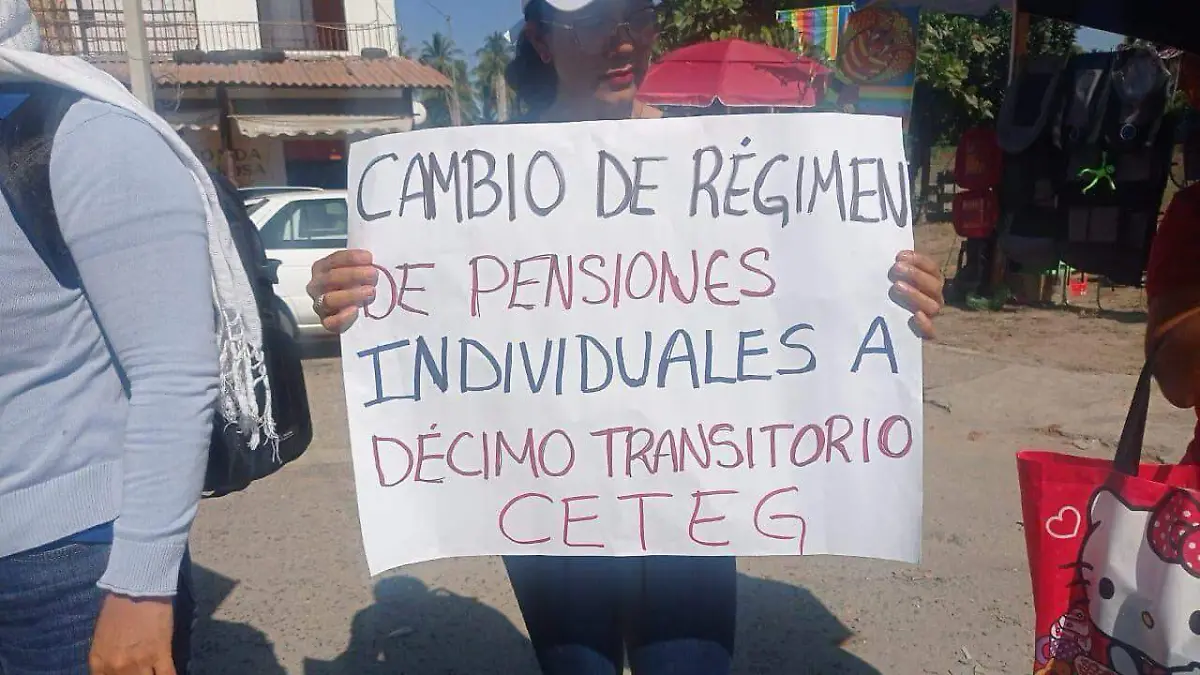 CAMBIO DE RÉGIMEN
DE PENSIONES
INDIVIDUALES A
DÉCIMO TRANSITORIO
CETEG